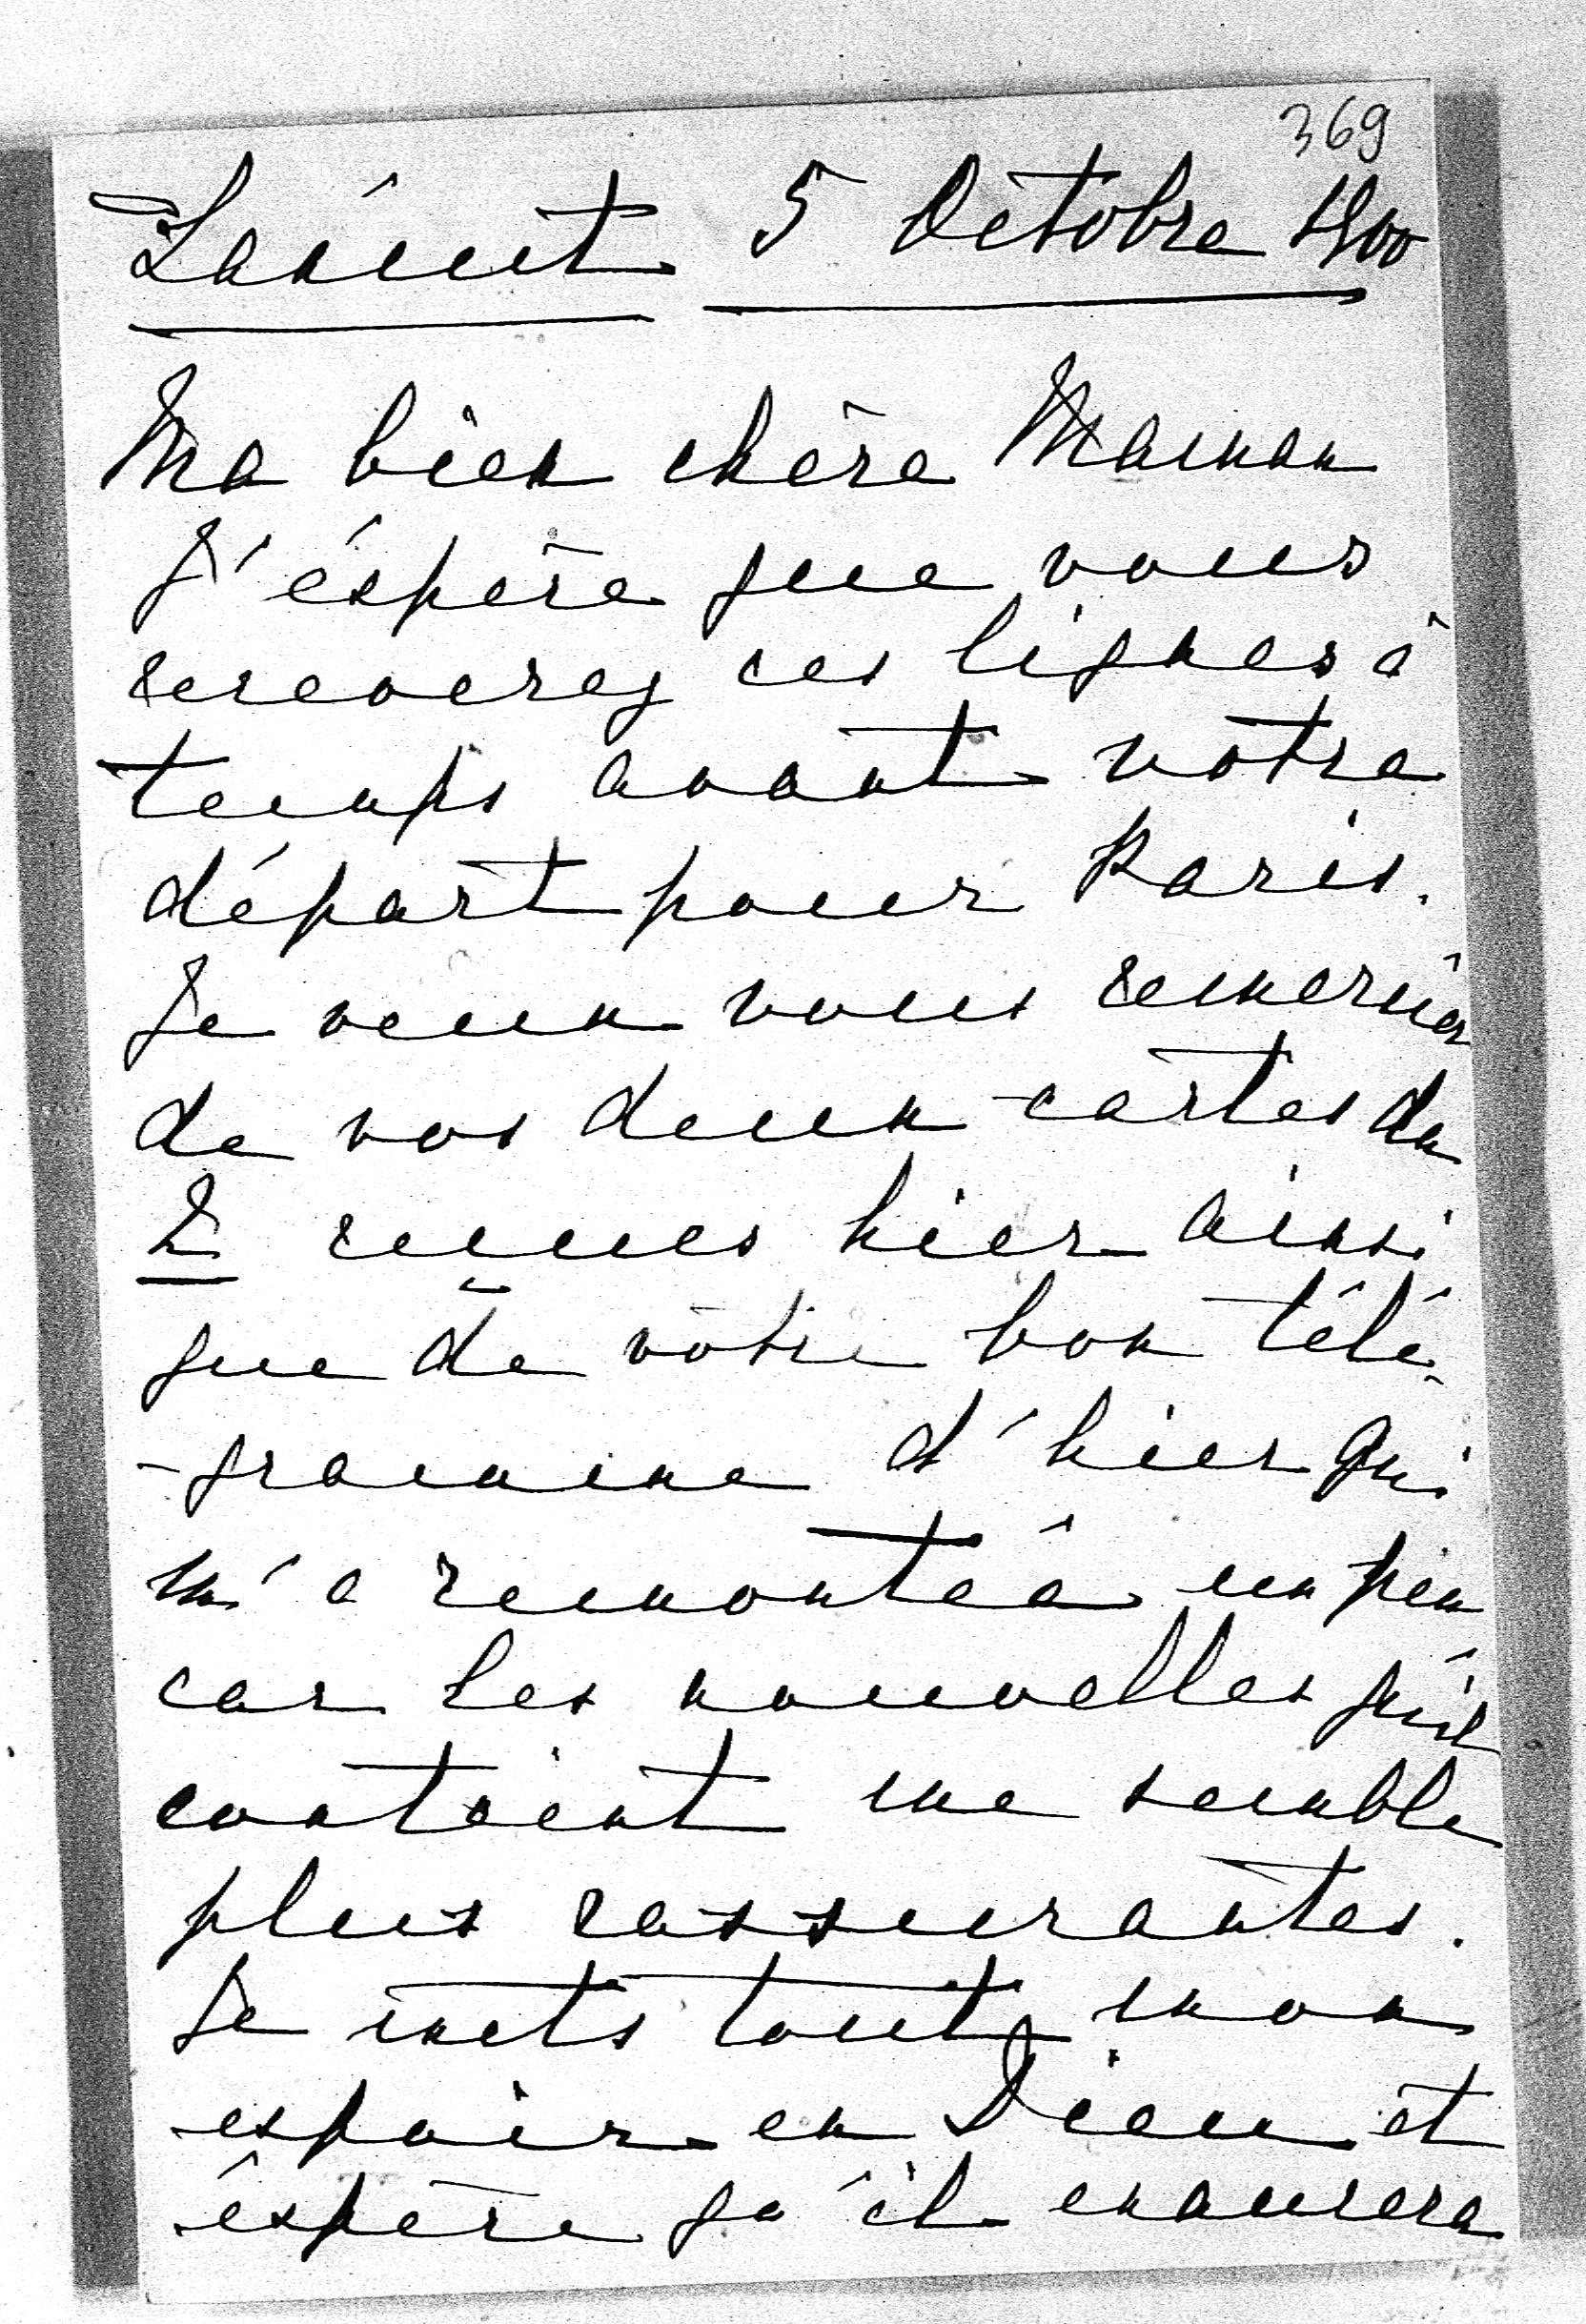 369
Lancut 5 Octobre 1900
Ma bien chère Maman
J'éspère que vous
recevrez ces lignes à
temps avant votre
départ pour Paris.
Je veux vous remercier
de vos deux cartes du
2 reçues hier ainsi
que de votre bon télé-
-gramme d'hier qui
m'a remontée un peu
car les nouvelles qu'il
contient me semble
plus rassurantes.
Je mets tout mon
espoir en Dieu et
éspère qu'il exaucera